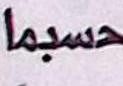 حسبما